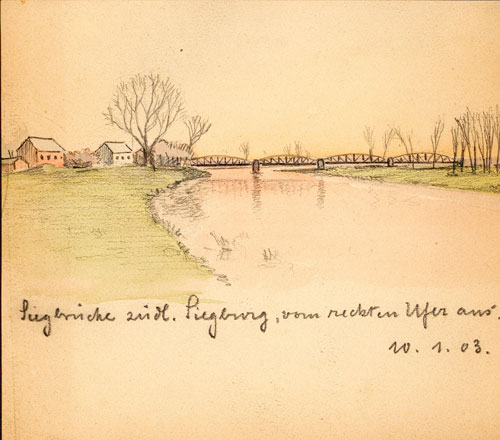 Siegbrücke südl. Siegburg, vom rechten Ufer aus.
10. 1. 03.